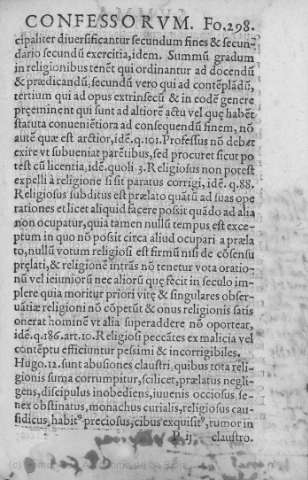 CONFESSORVM. Fo.298.
cipaliter diuersificantur secundum fines & secun-
dario secundū exercitia, idem. Summū gradum
in religionibus tenēt qui ordinantur ad docendū
& prædicandū, secundū vero qui ad contēplādū,
tertium qui ad opus extrinsecū & in eodē genere
pręeminent qui sunt ad altiorē actū vel quę habēt
statuta conueniētiora ad consequendū finem, nō
autē quæ est arctior, idē.q.101. Professus nō debet
exire vt subueniat parētibus, sed procuret sicut po
test cū licentia, idē.quoli 3. Religiosus non potest
expelli à religione si sit paratus corrigi, idē.q.88.
Religiosus subditus est prælato quātū ad suas ope
rationes et licet aliquid facere possit quādo ad alia
non ocupatur, quia tamen nullū tempus est exce-
ptum in quo nō possit circa aliud ocupari a præla
to, nullū votum religiosi est firmū nisi de cōsensu
pręlati, & religionē intrās nō tenetur vota oratio-
nū vel ieiuniorū nec aliorū quę fecit in seculo im
plere quia moritur priori vitę & singulares obser-
uātiæ religioni nō cōpetūt & onus religionis satis
onerat hominē vt alia superaddere nō oporteat,
idē.q.186.art.10. Religiosi peccātes ex malicia vel
contēptu efficiuntur pessimi & incorrigibiles.
Hugo.12. sunt abusiones claustri, quibus tota reli-
gionis suma corrumpitur, scilicet, prælatus negli-
gens, discipulus inobediens, iuuenis occiosus se-
nex obstinatus, monachus curialis, religiosus cau-
sidicus, habitꝰ preciosus, cibus exquisitꝰ, rumor in
claustro.